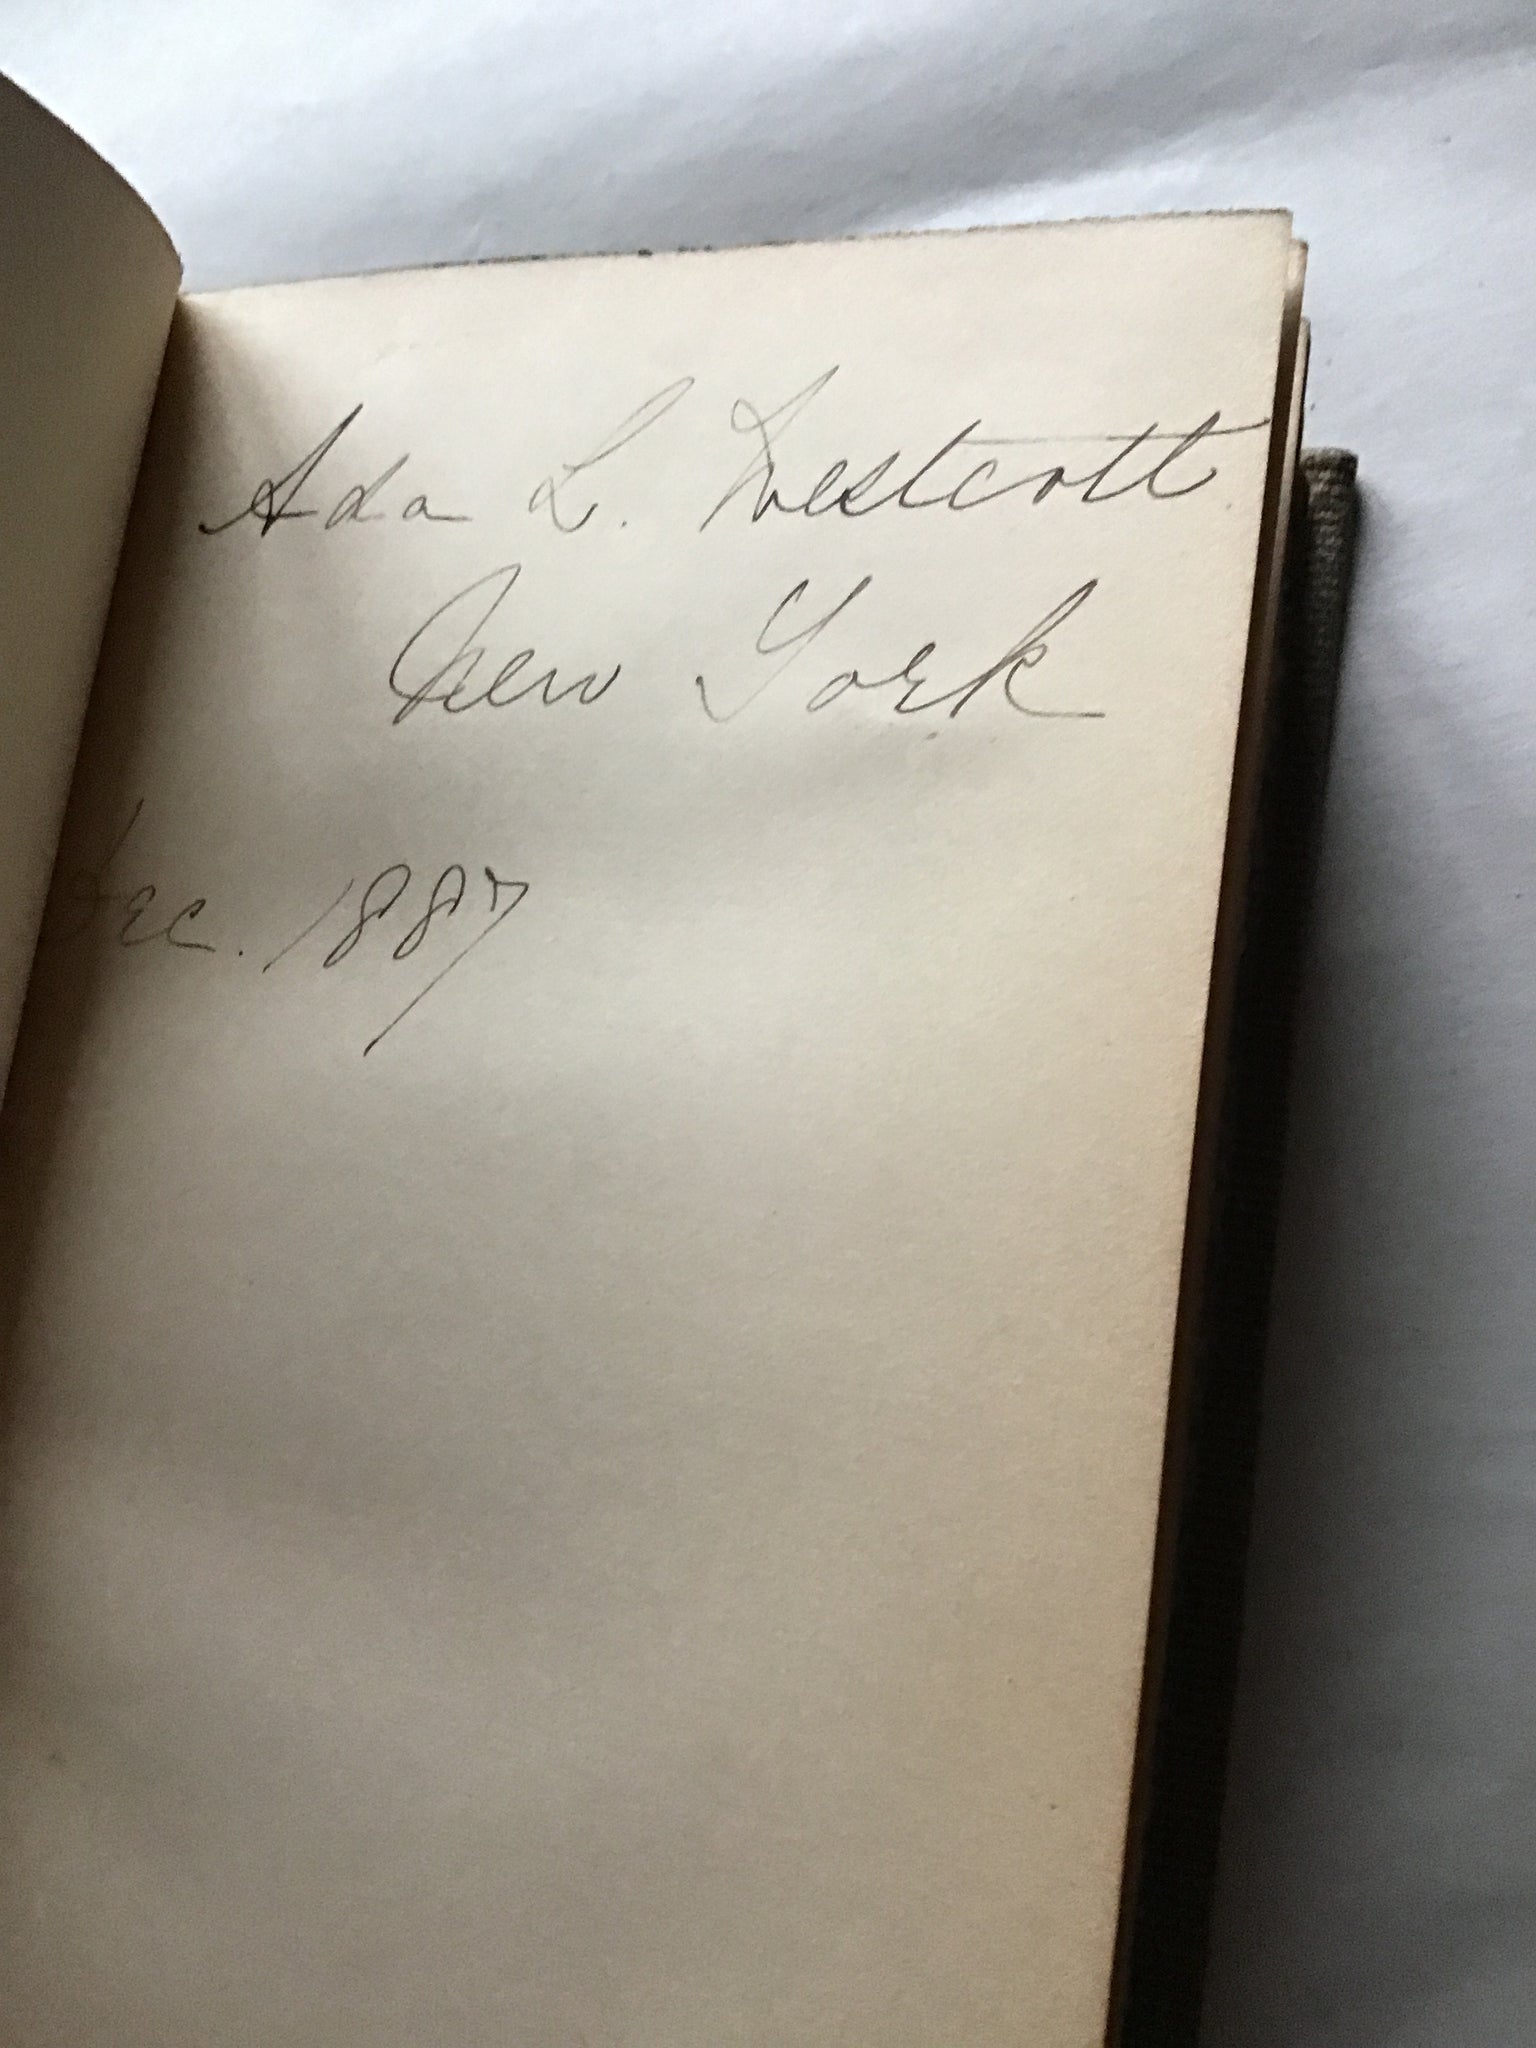 Ada L. Westcott
New York
Dec. 1887